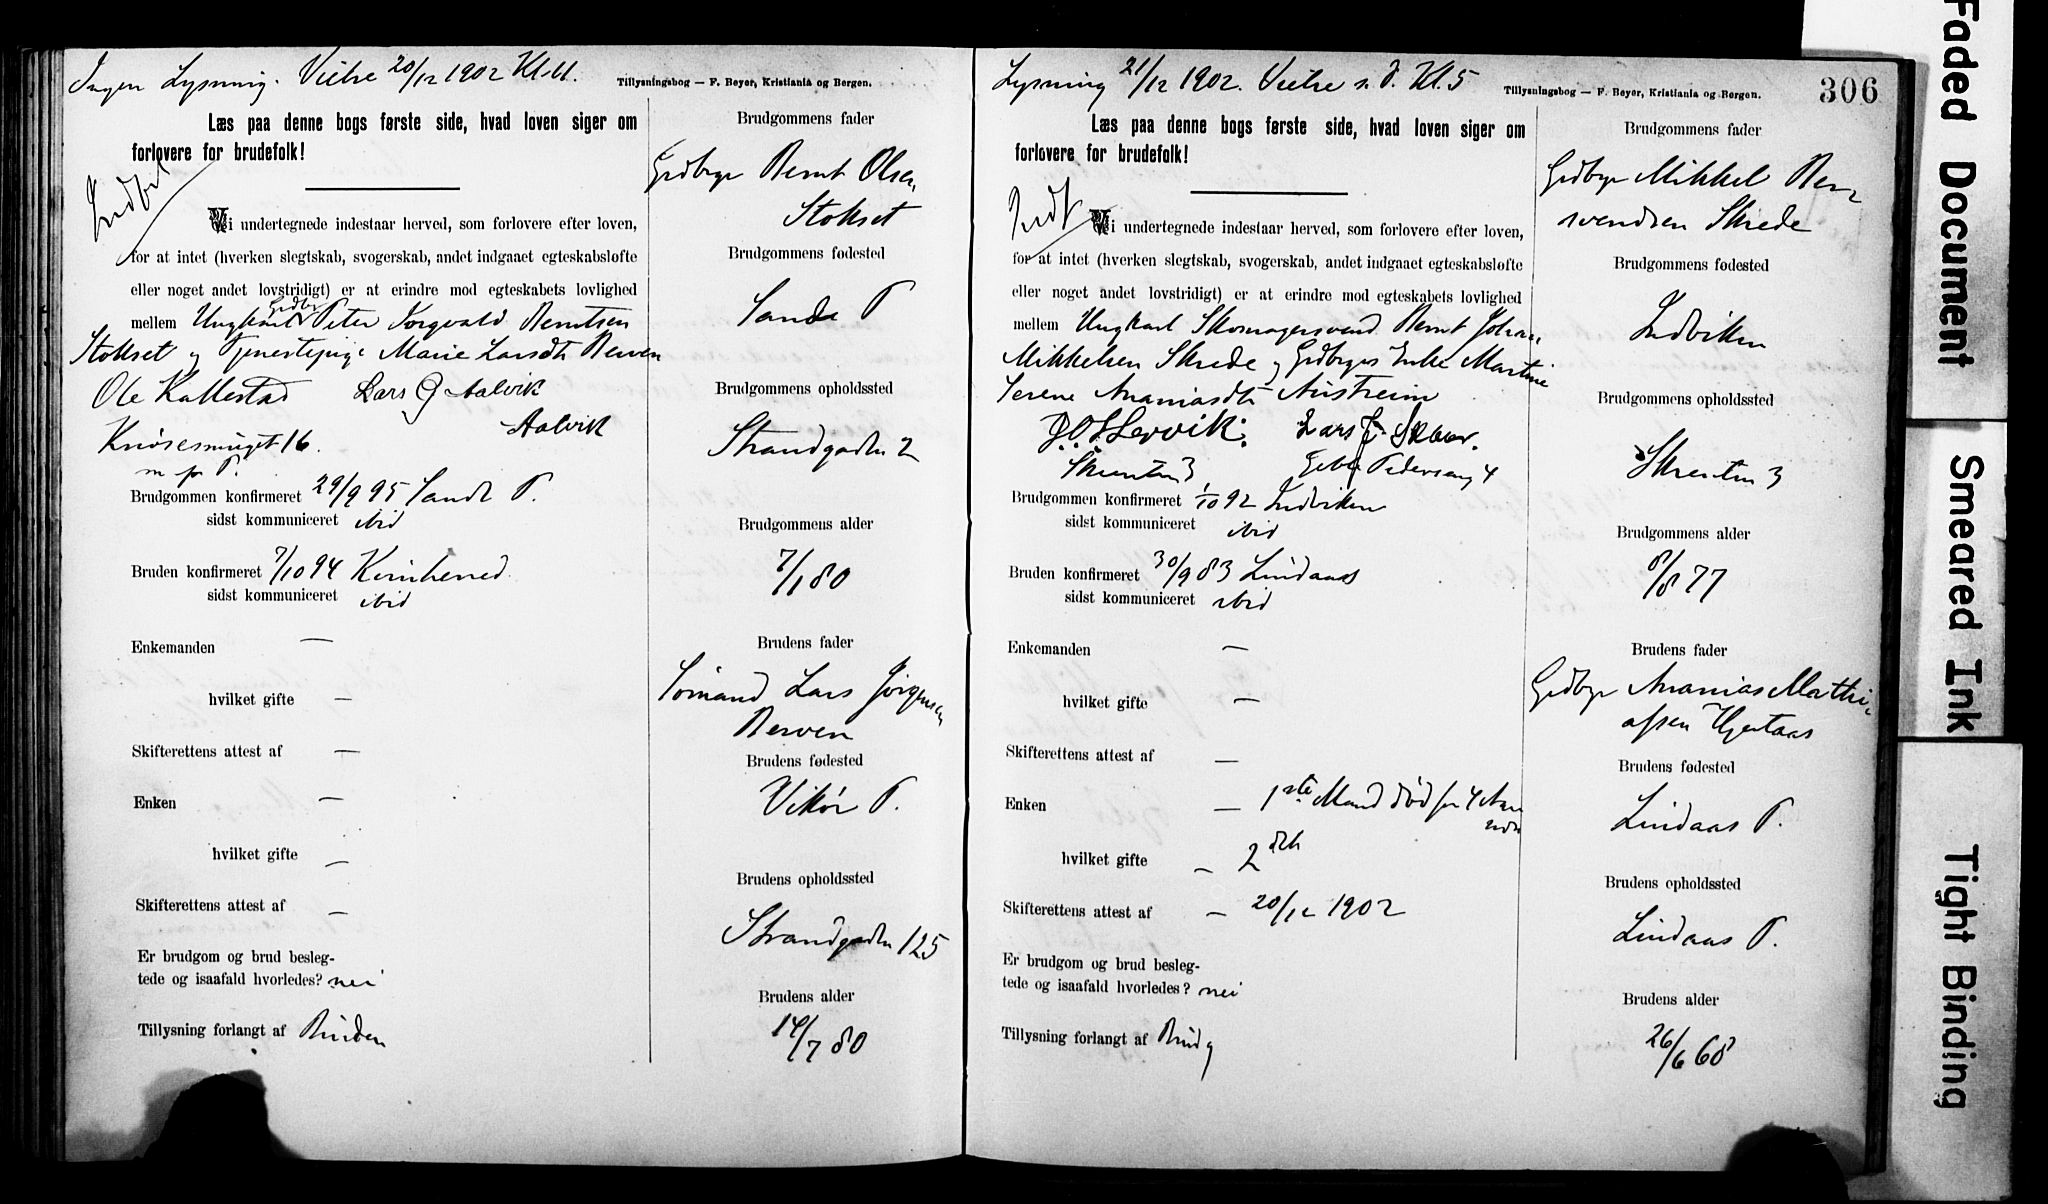 Ingen Lysning. Vielse 20/12 1902 Kl. 11.
Tillysningsbog — F. Beyer, Kristiania og Bergen.
Læs paa denne bogs første side, hvad loven siger om
forlovere for brudefolk!
Indført
Vi undertegnede indestaar herved, som forlovere efter loven,
for at intet (hverken slegtskab, svogerskab, andet indgaaet egteskabsløfte
eller noget andet lovstridigt) er at erindre mod egteskabets lovlighed
mellem Ungkarl Peter Torgvald Berntsen
Stokset og Tjenestepige Marie Larsdtr Berven
Ole Kallestad Lars G Aalvik
Knøsesmuget 16. Aalvik
Brudgommen konfirmeret 29/9 95 Sande P.
sidst kommuniceret ibid
Bruden konfirmeret 7/10 94 Kvinherred
sidst kommuniceret ibid
Enkemanden —
hvilket gifte —
Skifterettens attest af —
Enken —
hvilket gifte —
Skifterettens attest af —
Er brudgom og brud besleg-
tede og isaafald hvorledes? nei
Tillysning forlangt af Bruden
Brudgommens fader
Grdbrgr Bernt Olsen
Stokset
Brudgommens fødested
Sande P
Brudgommens opholdssted
Strandgaden 2
Brudgommens alder
7/1 80
Brudens fader
Sømand Lars Jørgensen
Berven
Brudens fødested
Vikør P.
Brudens opholdssted
Strandgaden 125
Brudens alder
14/7 80
Lysning 21/12 1902. Vielse s. d. Kl. 5
Tillysningsbog — F. Beyer, Kristiania og Bergen.
306
Læs paa denne bogs første side, hvad loven siger om
forlovere for brudefolk!
Indf
Vi undertegnede indestaar herved, som forlovere efter loven,
for at intet (hverken slegtskab, svogerskab, andet indgaaet egteskabsløfte
eller noget andet lovstridigt) er at erindre mod egteskabets lovlighed
mellem Ungkarl Skomagersvend Bernt Johan
Mikkelsen Skrede og Grdbrgrs Enke Martine
Serene Ananiasdtr Austreim
Skrenten 3 Pedersmug 4
Brudgommen konfirmeret 1/10 92 Indviken
sidst kommuniceret ibid
Bruden konfirmeret 30/9 83 Lindaas
sidst kommuniceret ibid
Enkemanden —
hvilket gifte —
Skifterettens attest af —
Enken — 1ste Mand død for 4 Aar
siden
hvilket gifte — 2det
Skifterettens attest af — 20/12 1902
Er brudgom og brud besleg-
tede og isaafald hvorledes? nei
Tillysning forlangt af Brudg
Brudgommens fader
Grdbrgr Mikkel Bern
svendsen Skrede
Brudgommens fødested
Indviken
Brudgommens opholdssted
Skrenten 3
Brudgommens alder
8/8 77
Brudens fader
Grdbrgr Ananias Mathi-
assen Hjertaas
Brudens fødested
Lindaas P.
Brudens opholdssted
Lindaas P.
Brudens alder
26/6 68
Faded Document
Smeared Ink
Tight Binding